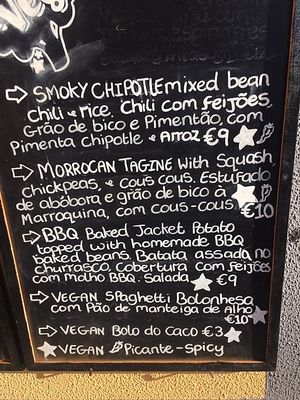 SMOKY CHIPOTLE mixed bean
Chili & rice. Chili com feijões,
Grão de bico e Pimentão, com
Pimenta chipotle & Arroz €9
MORROCAN TAGINE With Squash
chickpeas, & cous cous. Estufado
de abóbora e grão de bico à
Marroquina, com cous-cous €10
BBQ Baked Jacket Potato
topped with homemade BBQ
baked beans. Batata assada no
churrasco, cobertura com feijões
com molho BBQ. Salada €9
VEGAN Spaghetti Bolonhesa
com Pão de manteiga de Alho
€10
VEGAN Bolo do Caco €3
VEGAN Picante - Spicy